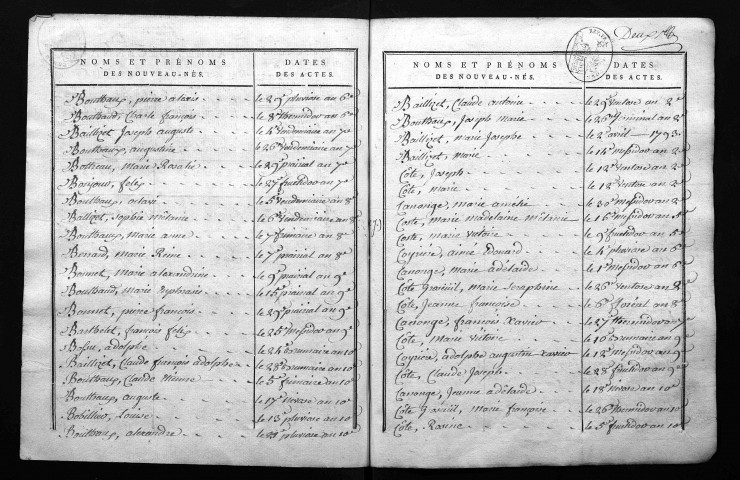 NOMS ET PRÉNOMS
DES NOUVEAU-NÉS.
DATES
DES ACTES.
Bouthaux, pierre alexis le 29 pluviose an 6e
Bouthaud, Charle françois le 8e thermidor an 6e
Baillizet Joseph auguste le 4e Vendemiaire an 7e
Bouthaux, augustine le 26e Vendemiaire an 7e
Botteau, marie Rosalie le 29 prairial an 7e
Bonjour, felix le 27e fructidor an 7e
Bouthaux, octavi le 5e Vendemiaire an 8e
Ballizet, Sophie mélanie le 6e Vendemiaire an 8e
Bouthaux, marie anne le 7 frimaire an 8e
Bernard, marie Reine le 7e prairial an 8e
Bonnet, marie alexandrine le 9e prairial an 9e
Bouthaud, marie Euphrasie le 15e prairial an 9e
Bonnet, pierre françois le 29e prairial an 9e
Berthelet, françois felix le 25e messidor an 9e
Bosne, adolphe le 24e brumaire an 10e
Baillizet, Claude françois adolphe le 28e brumaire an 10e
Bouthaux, Claude le 5e frimaire an 10e
Bouthaux, auguste le 17e nivose an 10e
Bobillier, Louise le 13e pluviose an 10e
Bouthaux, alexandre le 21e pluviose an 10e
Deux
NOMS ET PRÉNOMS
DES NOUVEAU-NÉS.
DATES
DES ACTES.
Baillizet, Claude antoine le 29 Ventose an 2e
Bouthaux, Joseph marie le 26e Germinal an 2e
Baillizet, marie Josephe le 2e avril 1793
Baillizet, marie le 14e messidor an 2e
Côte, Joseph le 12e Ventose an 2e
Côte, marie le 12e Ventose an 2e
Canonge, marie amélie le 30e messidor an 2e
Coste, marie madelaine mélanie le 16e messidor an 5e
Coste, marie victoire le 9e fructidor an 5e
aimé Edouard le 4e pluviose an 6e
Canonge, marie adélaide le 1er messidor an 6e
Côte marie Seraphine le 26e Ventose an 8e
Côte, Jeanne françoise le 6e floréal an 8e
Canonge, françois Xavier le 27 thermidor an 7e
Côte, marie victoire le 10e brumaire an 9e
adolphe augustin xavier le 12e messidor an 9e
Côte, Claude Joseph le 28e fructidor an 9e
Canonge, Jeanne adélaide le 18e nivose an 10e
Côte marie françoise le 26e thermidor an 10e
Côte, Rosine le 5e fructidor an 10e